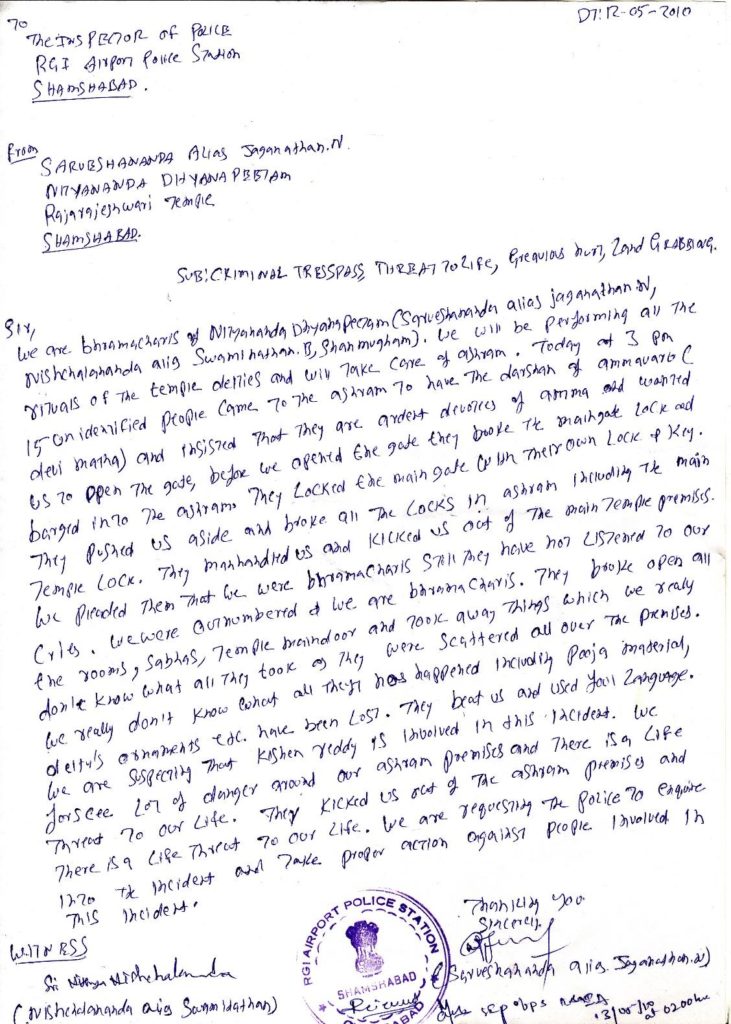 TO
DT: 12-05-2010
The INSPECTOR OF POLICE
RGI Airport Police Station
SHAMSHABAD.
From
SARVESHANANDA Alias Jaganathan.N.
NITYANANDA DHYANAPEETAM
Rajarajeshwari Temple
SHAMSHABAD.
SUB: CRIMINAL TRESSPASS, THREAT TO LIFE, Grequious hurt, Land GRABBING.
Sir,
We are bhramacharis of Nithyananda Dhyanapeetam (Sarveshananda alias jaganathan.N,
Nishchalananda alias Swaminathan.B, Shanmugham). We will be performing all the
rituals of the temple deities and will take care of ashram. Today at 3 pm
15 unidentified people came to the ashram to have the darshan of ammavaru (
devi matha) and insisted that they are ardent devotees of amma and wanted
us to open the gate, before we opened the gate they broke the maingate lock and
barged into the ashram. They locked the main gate with their own Lock & Key.
They pushed us aside and broke all the locks in ashram including the main
Temple lock. They manhandled us and kicked us out of the main temple premises.
We pleaded them that we were bhramacharis still they have not listened to our
cries. We were outnumbered & we are bhramacharis. They broke open all
the rooms, sabhas, temple maindoor and took away things which we really
don't know what all they took as they were scattered all over the premises.
We really don't know what all has happened including pooja material,
deity's ornaments etc. have been lost. They beat us and used foul language.
We are suspecting that Kishen reddy is involved in this incident. We
forscee lot of danger around our ashram premises and there is a life
threat to our life. They kicked us out of the ashram premises and
There is a life threat to our life. We are requesting the police to enquire
into the incident and take proper action against people involved in
this incident.
Thanking you
Sincerely
WITNESS
(Sarveshananda alias Jaganathan.N)
(Nishchalananda alias Swaminathan)
RGI AIRPORT POLICE STATION
SHAMSHABAD
at 0200